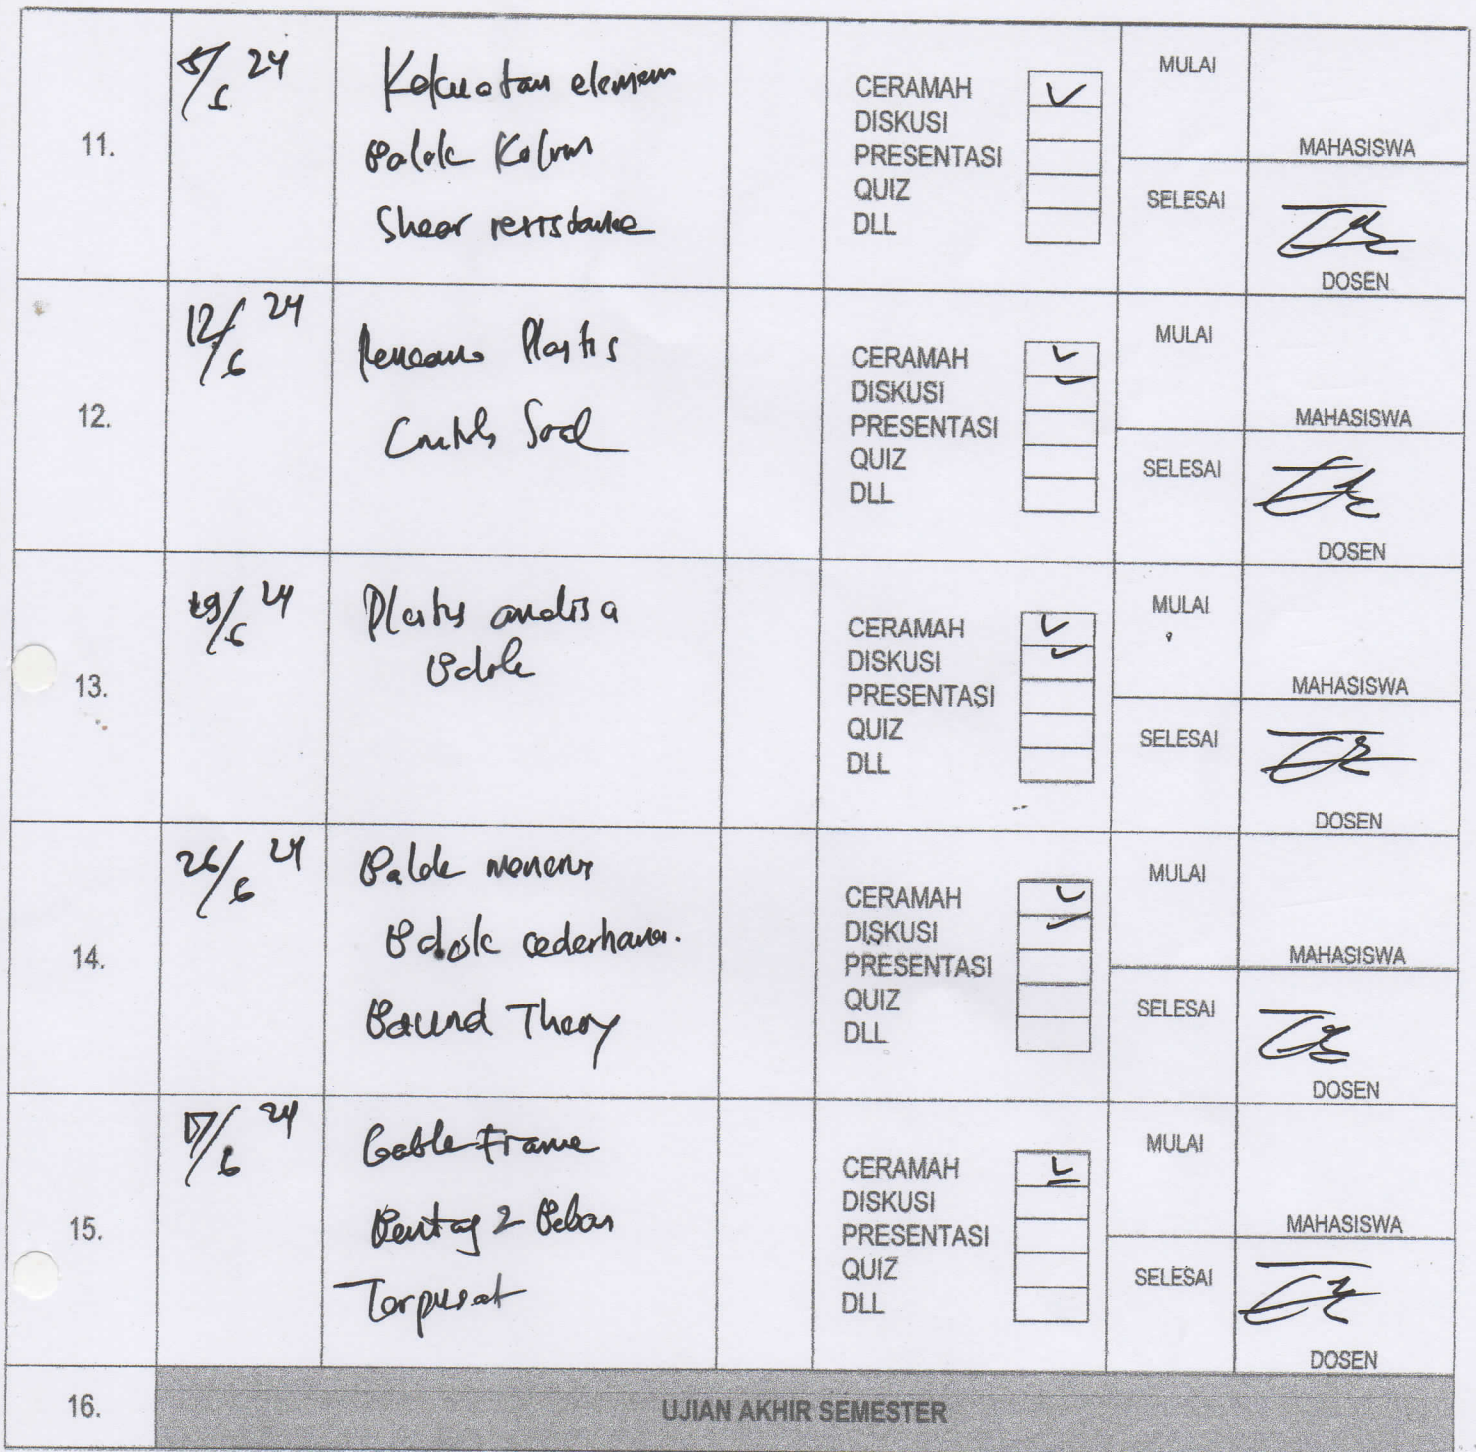 11.
5/6 24
Kekuatan elemen
Balok Kolom
Shear resistance
CERAMAH
DISKUSI
PRESENTASI
QUIZ
DLL
MULAI
MAHASISWA
SELESAI
DOSEN
12.
12/6 24
Rencana Plastis
Contoh Soal
CERAMAH
DISKUSI
PRESENTASI
QUIZ
DLL
MULAI
MAHASISWA
SELESAI
DOSEN
13.
19/6 24
Plastis analisa
Balok
CERAMAH
DISKUSI
PRESENTASI
QUIZ
DLL
MULAI
MAHASISWA
SELESAI
DOSEN
14.
26/6 24
Balok menerus
Balok sederhana.
Bound Theory
CERAMAH
DISKUSI
PRESENTASI
QUIZ
DLL
MULAI
MAHASISWA
SELESAI
DOSEN
15.
/6 24
Gable Frame
Bentang 2 Beban
Terpusat
CERAMAH
DISKUSI
PRESENTASI
QUIZ
DLL
MULAI
MAHASISWA
SELESAI
DOSEN
16.
UJIAN AKHIR SEMESTER